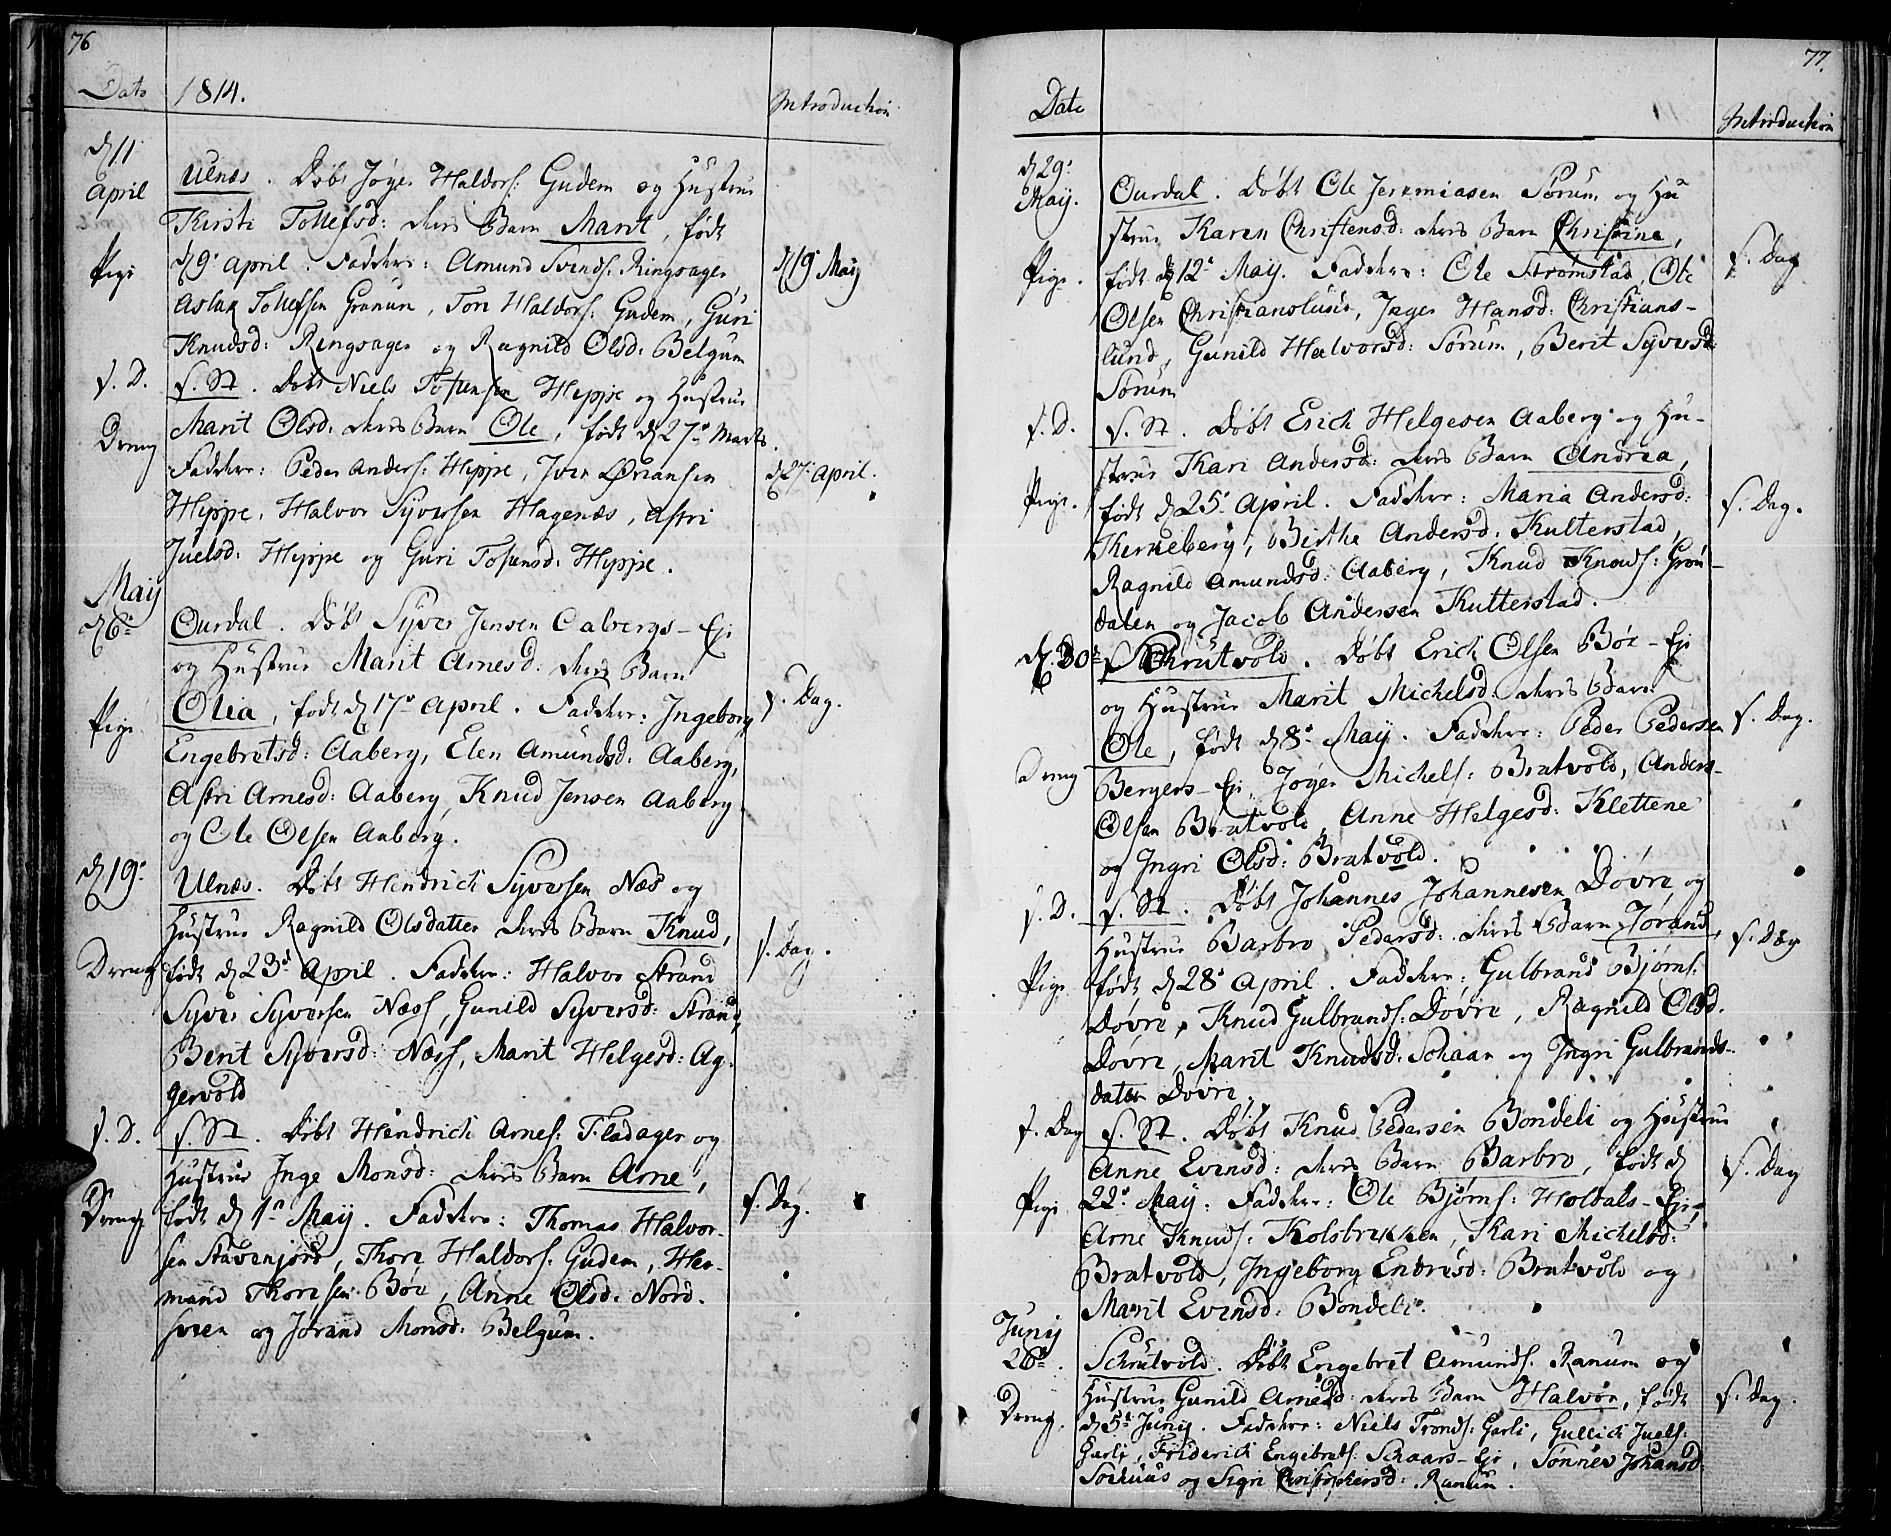 76
Dato 1814. Introduction
d 11
April
Ulnæs. Døbt Jøger Haldors: Gudem og Hustrue
Kirsti Tollefsd: deres Barn Marit, født
Pige d 9de April. Faddere: Amund Svends: Ringsager, d 19 Maij
Aslak Tollefsen Granum, Tore Haldors: Gudem, Guri
Knudsd: Ringsager og Ragnild Olsd: Belgum
s. D. s. St. Døbt Niels Tostensen Hippe og Hustrue
Dreng Marit Olsd: deres Barn Ole, født d 27de Marts.
Faddere: Peder Anders: Hippe, Iver Ørjansen d 27 April.
Hippe, Halvor Syversen Hagenæs, Astri
Juelsd: Hippe og Guri Tostensd: Hippe.
Maij
d 6te Ourdal. Døbt Syver Jensen Calvergs-Eje
og Hustrue Marit Arnesd: deres Barn
Pige Olia, født d 17de April. Faddere: Ingeborg s. Dag.
Engebretsd: Aaberg, Elen Amundsd: Aaberg,
Astri Arnesd: Aaberg, Knud Jensen Aaberg
og Ole Olsen Aaberg.
d 19de Ulnæs. Døbt Hendrich Syversen Næs og
Hustrue Ragnild Olsdatter deres Barn Knud,
Dreng født d 23d April. Faddere: Halvor Strand s. Dag.
Syver Syversen Næss, Gunild Syversd: Strand,
Berit Syversd: Næss, Marit Helgesd: Ag-
gervold
s. D. s. St. Døbt Hendrich Arnes: Fladager og
Hustrue Inge Monsd: deres Barn Arne,
Dreng født d 1te Maij. Faddere: Thomas Halvor- s. Dag.
sen Stavenjord, Thore Haldors: Gudem, Her-
mand Thoresen Bøe, Anne Olsd: Nord-
sveen og Jørand Monsd: Belgum.
77.
Date Introduction
d 29de
Maij. Ourdal. Døbt Ole Jeremiasen Sørum og Hu
strue Karen Christensd: deres Barn Christine,
Pige. født d 12te Maij. Faddere: Ole Strømstad, Ole s. Dag
Olsen Christianslund, Inger Hansd: Christians-
lund, Gunild Halvorsd: Sørum, Berit Syversd:
Sørum
s. D. s. St. Døbt Erich Helgesen Aaberg og Hu-
strue Kari Andersd: deres Barn Andrea,
Pige. født d 25de April. Faddere: Maria Andersd: s. Dag.
Kerkeberg, Birthe Andersd: Kulterstad,
Ragnild Amundsd: Aaberg, Knud Knuds: Grøn-
dalen og Jacob Andersen Kutterstad.
d. 30te Schrutvold. Døbt Erich Olsen Bøe-Eje
og Hustrue Marit Michelsd: deres Barn
Ole, født d 8de Maij. Faddere: Peder Pedersen s. Dag.
Dreng Bergers-Eje, Jøger Michels: Bratvold, Anders
Olsen Bratvold, Anne Helgesd: Klettene
og Ingri Olsd: Bratvold.
s. D. s. St. Døbt Johannes Johannesen Døvre og
Hustrue Barbro Pedersd: deres Barn Jørand, s. Dag
Pige født d 28de April. Faddere: Gulbrand Bjørns:
Døvre, Knud Gulbrands: Døvre, Ragnild Olsd:
Døvre, Marit Knudsd: Schaar og Ingri Gulbrands-
datter Døvre.
s. Dag s. St. Døbt Knud Pedersen Bondeli og Hustrue
Anne Evensd: deres Barn Barbro, født d s. Dag
Pige 22de Maij. Faddere: Ole Bjørns: Hovdals-Eje,
Arne Knuds: Kolsbrekken, Kari Michelsd:
Bratvold, Ingeborg Endresd: Bratvold og
Marit Evensd: Bondeli.
Junij
26de. Schrutvold. Døbt Engebret Amunds: Ranum og
Hustrue Gunild Arnesd: deres Barn Halvor, født s. Dag.
Dreng. d 5te Junij. Faddere: Niels Tronds: Garli, Gullich Juels:
Garli, Friderich Engebrets: Schaars-Eje, Tønnes Johansd:
Sorhuus og Sigri Christophersd: Ranum.